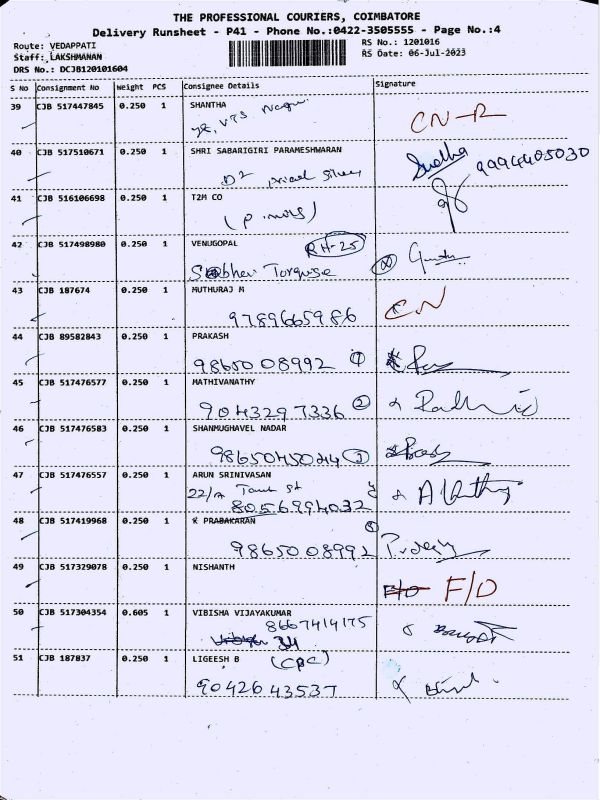 THE PROFESSIONAL COURIERS, COIMBATORE
Delivery Runsheet - P41 - Phone No.:0422-3505555 - Page No.:4
Route: VEDAPPATI
RS No.: 1201016
Staff: LAKSHMANAN
RS Date: 06-Jul-2023
DRS No.: DCJB120101604
S No Consignment No Weight PCS Consignee Details Signature
39 CJB 517447845 0.250 1 SHANTHA
CN-R
40 CJB 517510671 0.250 1 SHRI SABARIGIRI PARAMESHWARAN
Sudha 9994405030
41 CJB 516106698 0.250 1 T2M CO
42 CJB 517498980 0.250 1 VENUGOPAL RH-25
43 CJB 187674 0.250 1 MUTHURAJ M
CN
9789665986
44 CJB 89582843 0.250 1 PRAKASH
9865008992 1
45 CJB 517476577 0.250 1 MATHIVANATHY
9043297336 2
46 CJB 517476583 0.250 1 SHANMUGHAVEL NADAR
9865045044 3
47 CJB 517476557 0.250 1 ARUN SRINIVASAN
22/A Tank St
8056994032
48 CJB 517419968 0.250 1 K PRABAKARAN
9865008992
49 CJB 517329078 0.250 1 NISHANTH
F/O
50 CJB 517304354 0.605 1 VIBISHA VIJAYAKUMAR
8667414175
51 CJB 187837 0.250 1 LIGEESH B (CPC)
9042643537